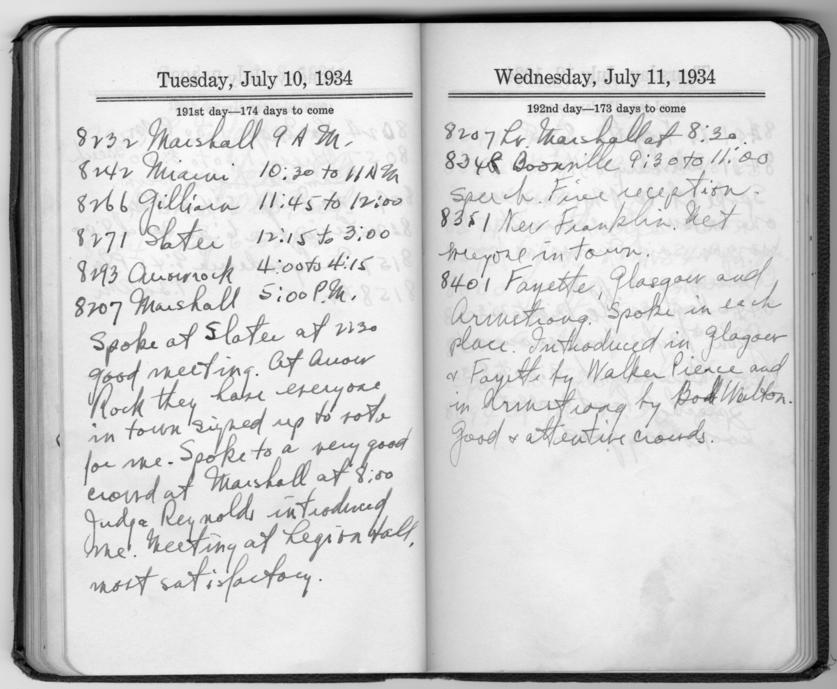 Tuesday, July 10, 1934
191st day—174 days to come
8232 Marshall 9 A.M.
8242 Miami 10:30 to 11 A M
8266 Gilliam 11:45 to 12:00
8271 Slater 12:15 to 3:00
8293 Arrowrock 4:00 to 4:15
8207 Marshall 5:00 P.M.
Spoke at Slater at 2230
good meeting. At Arrow
Rock they have everyone
in town signed up to vote
for me. Spoke to a very good
crowd at Marshall at 8:00
Judge Reynolds introduced
me. Meeting at Legion Hall,
most satisfactory.
Wednesday, July 11, 1934
192nd day—173 days to come
8207 Lv. Marshall at 8:30.
834 Boonville 9:30 to 11:00
speech. Fine reception.
8351 New Franklin. Met
everyone in town.
8401 Fayette, Glasgow and
Armstrong. Spoke in each
place. Introduced in Glasgow
& Fayette by Walker Pierce and
in Armstrong by Bob Walton.
Good & attentive crowds.